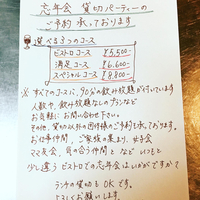 忘年会 貸切パーティーの
ご予約 承っております
選べる3つのコース
ビストロコース ¥5,500-
満足コース ¥6,600-
スペシャルコース ¥8,800-
※すべてのコースに、90分の飲み放題が付いています
人数や、飲み放題なしのプランなど
お気軽にお問い合わせ下さい。
その他、貸切以外の団体様のご予約も承っております。
お仕事仲間、ご家族の集まり、女子会
ママ友会、気の合う仲間と など いつもと
少し違うビストロでの忘年会はいかがですか?
ランチの貸切もOKです。
よろしくお願いします